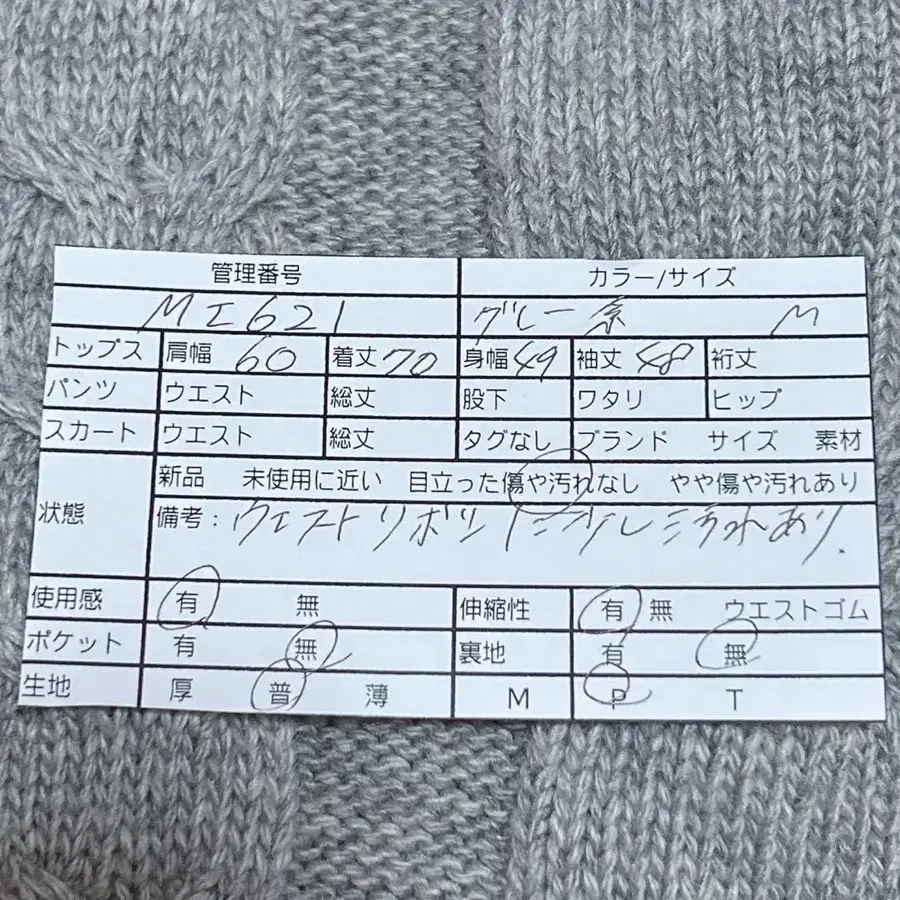 管理番号 カラー/サイズ
MI621 グレー系 M
トップス 肩幅 60 着丈 70 身幅 49 袖丈 48 裄丈
パンツ ウエスト 総丈 股下 ワタリ ヒップ
スカート ウエスト 総丈 タグなし ブランド サイズ 素材
状態 新品 未使用に近い 目立った傷や汚れなし やや傷や汚れあり
備考: ウエストリボン 汚れあり.
使用感 有 無 伸縮性 有 無 ウエストゴム
ポケット 有 無 裏地 有 無
生地 厚 普 薄 M P T